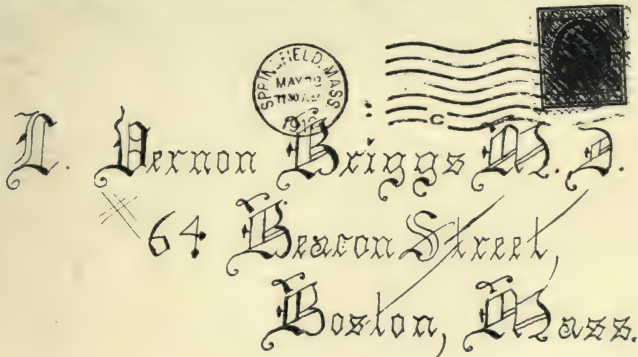 SPRINGFIELD, MASS
MAY
1130 AM
L. Vernon Briggs M.D.
64 Beacon Street,
Boston, Mass.